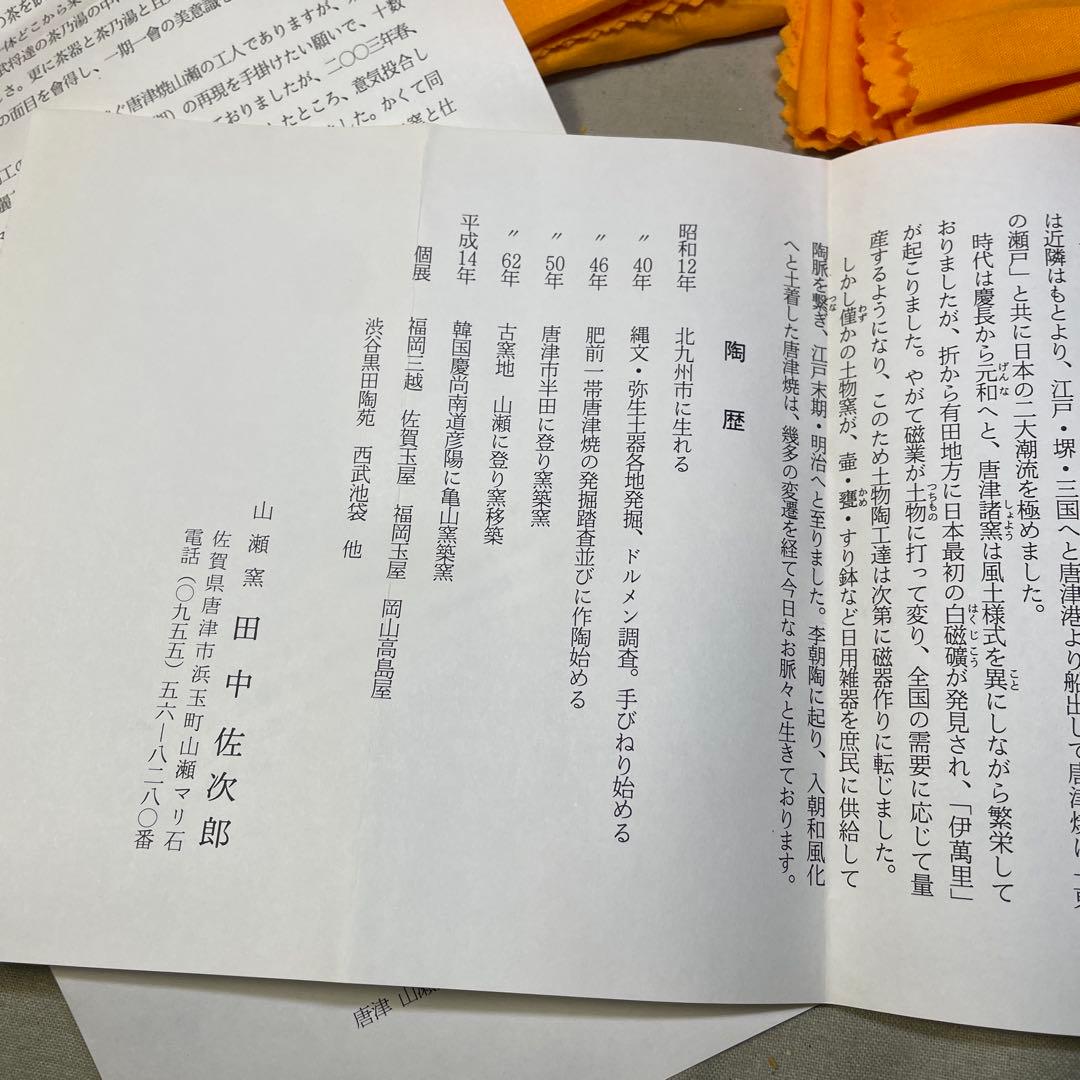 は近隣はもとより、江戸・堺・三国へと唐津港より船出して唐津焼は
の瀬戸」と共に日本の二大潮流を極めました。
時代は慶長から元和へと、唐津諸窯は風土様式を異にしながら繁栄して
おりましたが、折から有田地方に日本最初の白磁礦が発見され、「伊萬里」
が起こりました。やがて磁業が土物に打って変り、全国の需要に応じて量
産するようになり、このため土物陶工達は次第に磁器作りに転じました。
しかし僅かの土物窯が、壷・甕・すり鉢など日用雑器を庶民に供給して
陶脈を繋ぎ、江戸末期・明治へと至りました。李朝陶に起り、入朝和風化
へと土着した唐津焼は、幾多の変遷を経て今日なお脈々と生きております。
陶歴
昭和12年 北九州市に生れる
〃 40年 縄文・弥生土器各地発掘、ドルメン調査。手びねり始める
〃 46年 肥前一帯唐津焼の発掘踏査並びに作陶始める
〃 50年 唐津市半田に登り窯築窯
〃 62年 古窯地 山瀬に登り窯移築
平成14年 韓国慶尚南道彦陽に亀山窯築窯
個展 福岡三越 佐賀玉屋 福岡玉屋 岡山高島屋
渋谷黒田陶苑 西武池袋 他
山瀬窯 田中佐次郎
佐賀県唐津市浜玉町山瀬マリ石
電話(〇九五五)五六―八二八〇番
武将達の茶乃湯の中
さ。更に茶器と茶乃湯と
の面目を會得し、一期一會の美意識
ぐ唐津焼山瀬の工人でありますが、
の再現を手掛けたい願いで、十数
ておりましたが、二〇〇三年春、
したところ、意気投合し
ました。かくて同
窯と仕
唐津 山瀬